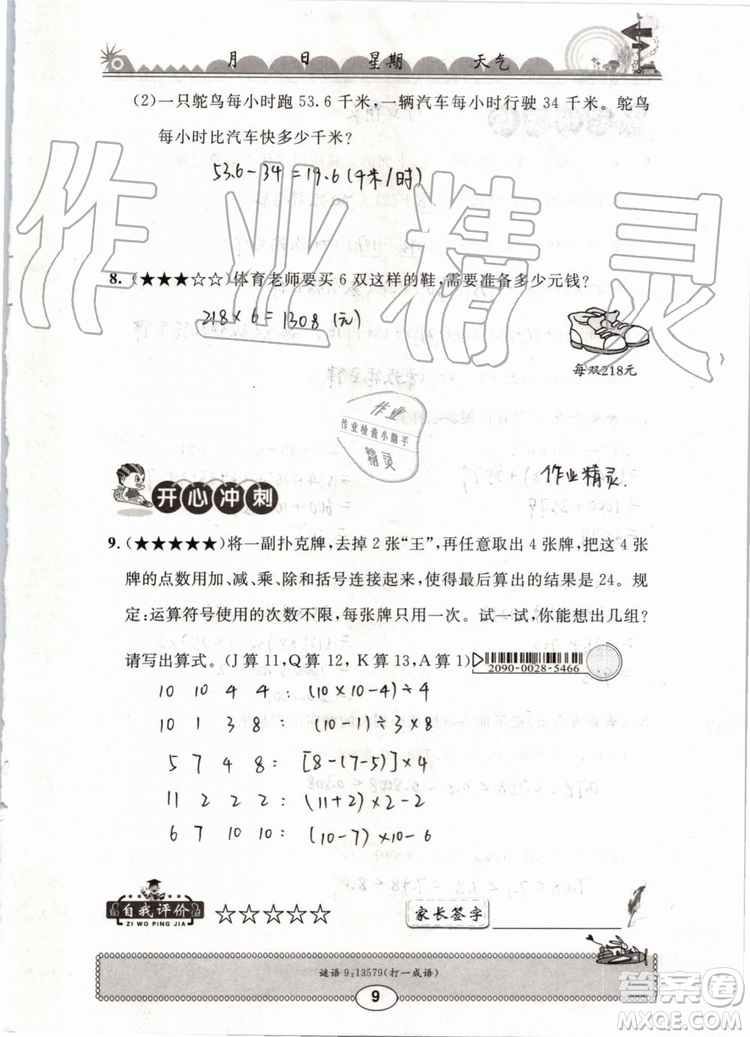 月 日 星期 天气
(2)一只鸵鸟每小时跑 53.6 千米，一辆汽车每小时行驶 34 千米。鸵鸟
每小时比汽车快多少千米？
53.6-34=19.6(千米/时)
8.(★★★☆☆)体育老师要买 6 双这样的鞋，需要准备多少元钱？
218×6=1308(元)
每双218元
作业
作业检查小助手
精灵
作业精灵.
开心冲刺
9.(★★★★★)将一副扑克牌，去掉 2 张“王”，再任意取出 4 张牌，把这 4 张
牌的点数用加、减、乘、除和括号连接起来，使得最后算出的结果是 24。规
定：运算符号使用的次数不限，每张牌只用一次。试一试，你能想出几组？
请写出算式。(J 算 11，Q 算 12，K 算 13，A 算 1)
2090-0028-5466
10 10 4 4：(10×10-4)÷4
10 1 3 8：(10-1)÷3×8
5 7 4 8：[8-(7-5)]×4
11 2 2 2：(11+2)×2-2
6 7 10 10：(10-7)×10-6
自我评价
ZI WO PING JIA
☆☆☆☆☆
家长签字
谜语 9：13579(打一成语)
9
作业精灵
答案圈
MXQE.COM